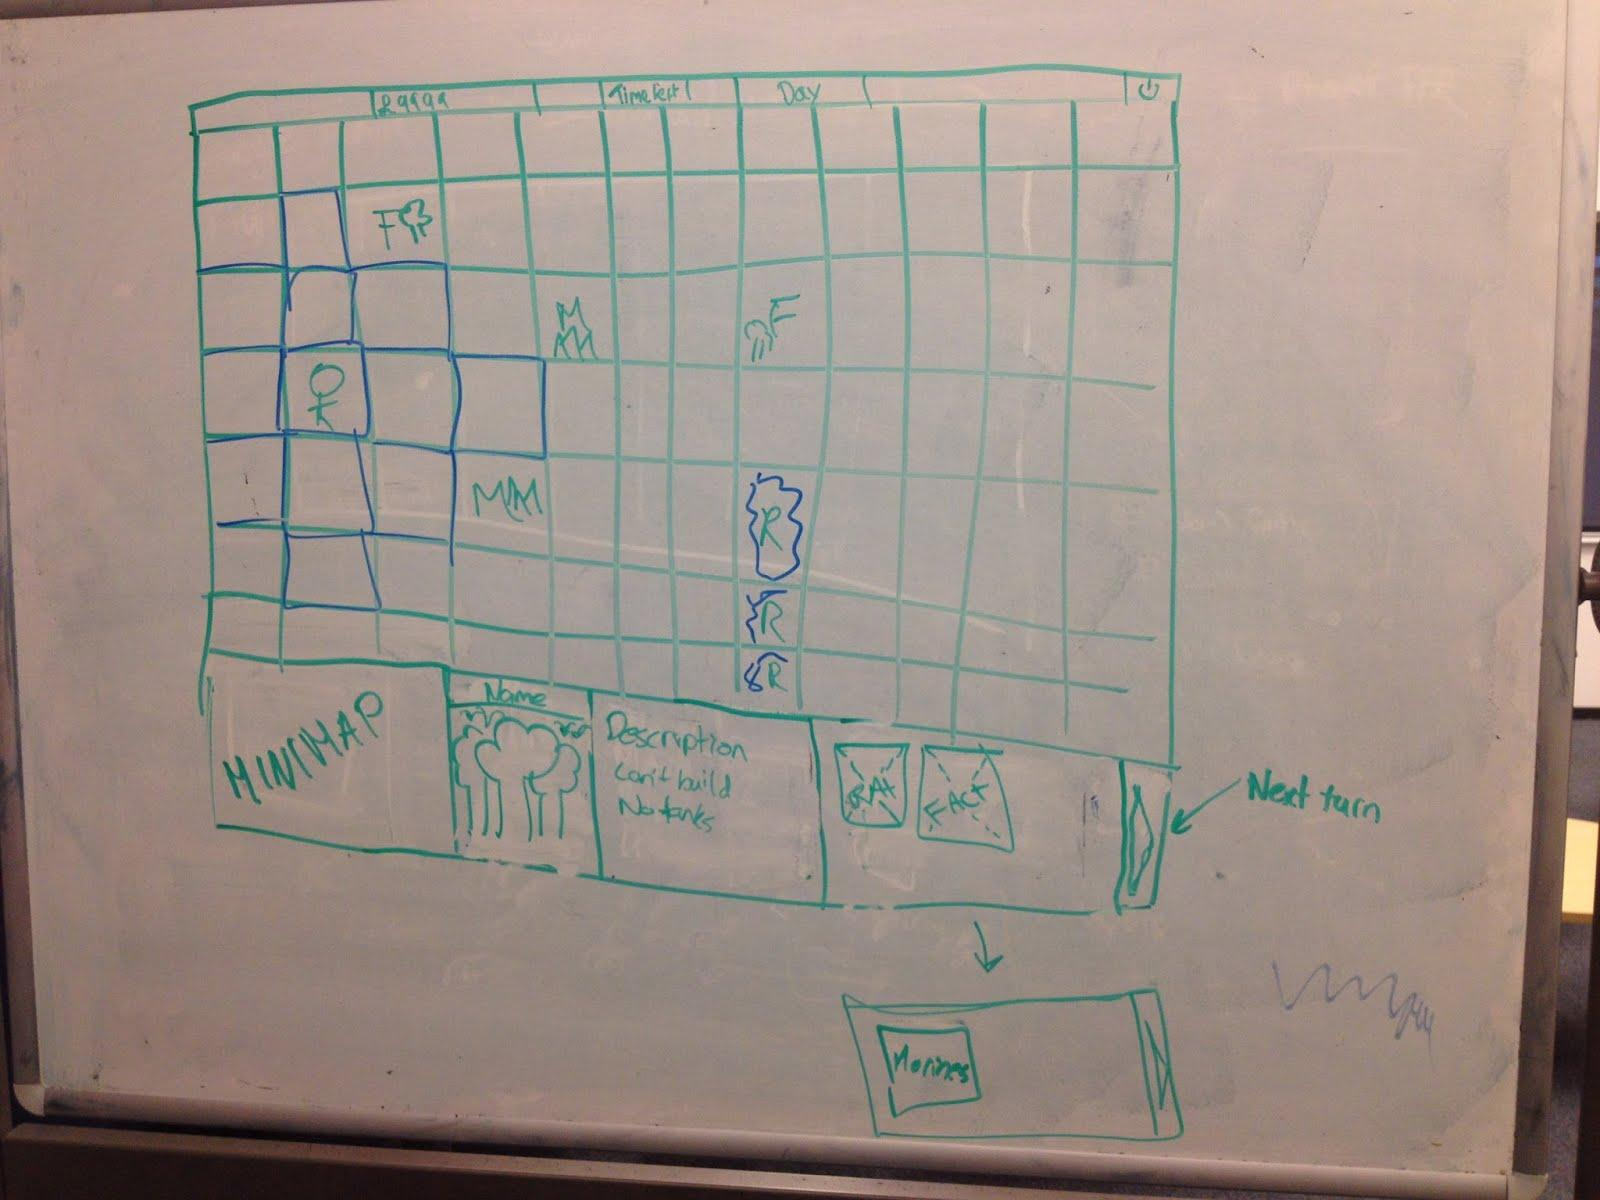 £9999
Time left
Day
F
M
F
R
R
R
MINIMAP
Name
Description
Can't build
No tanks
FACT
Next turn
Marines